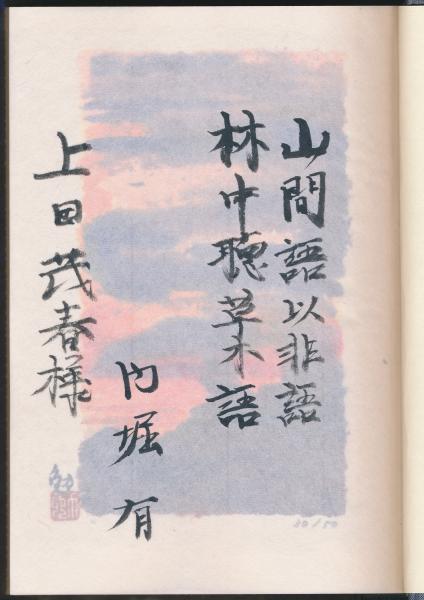 山間語以非語
林中聴草木語
内堀有
上田茂春様
勉
30/50